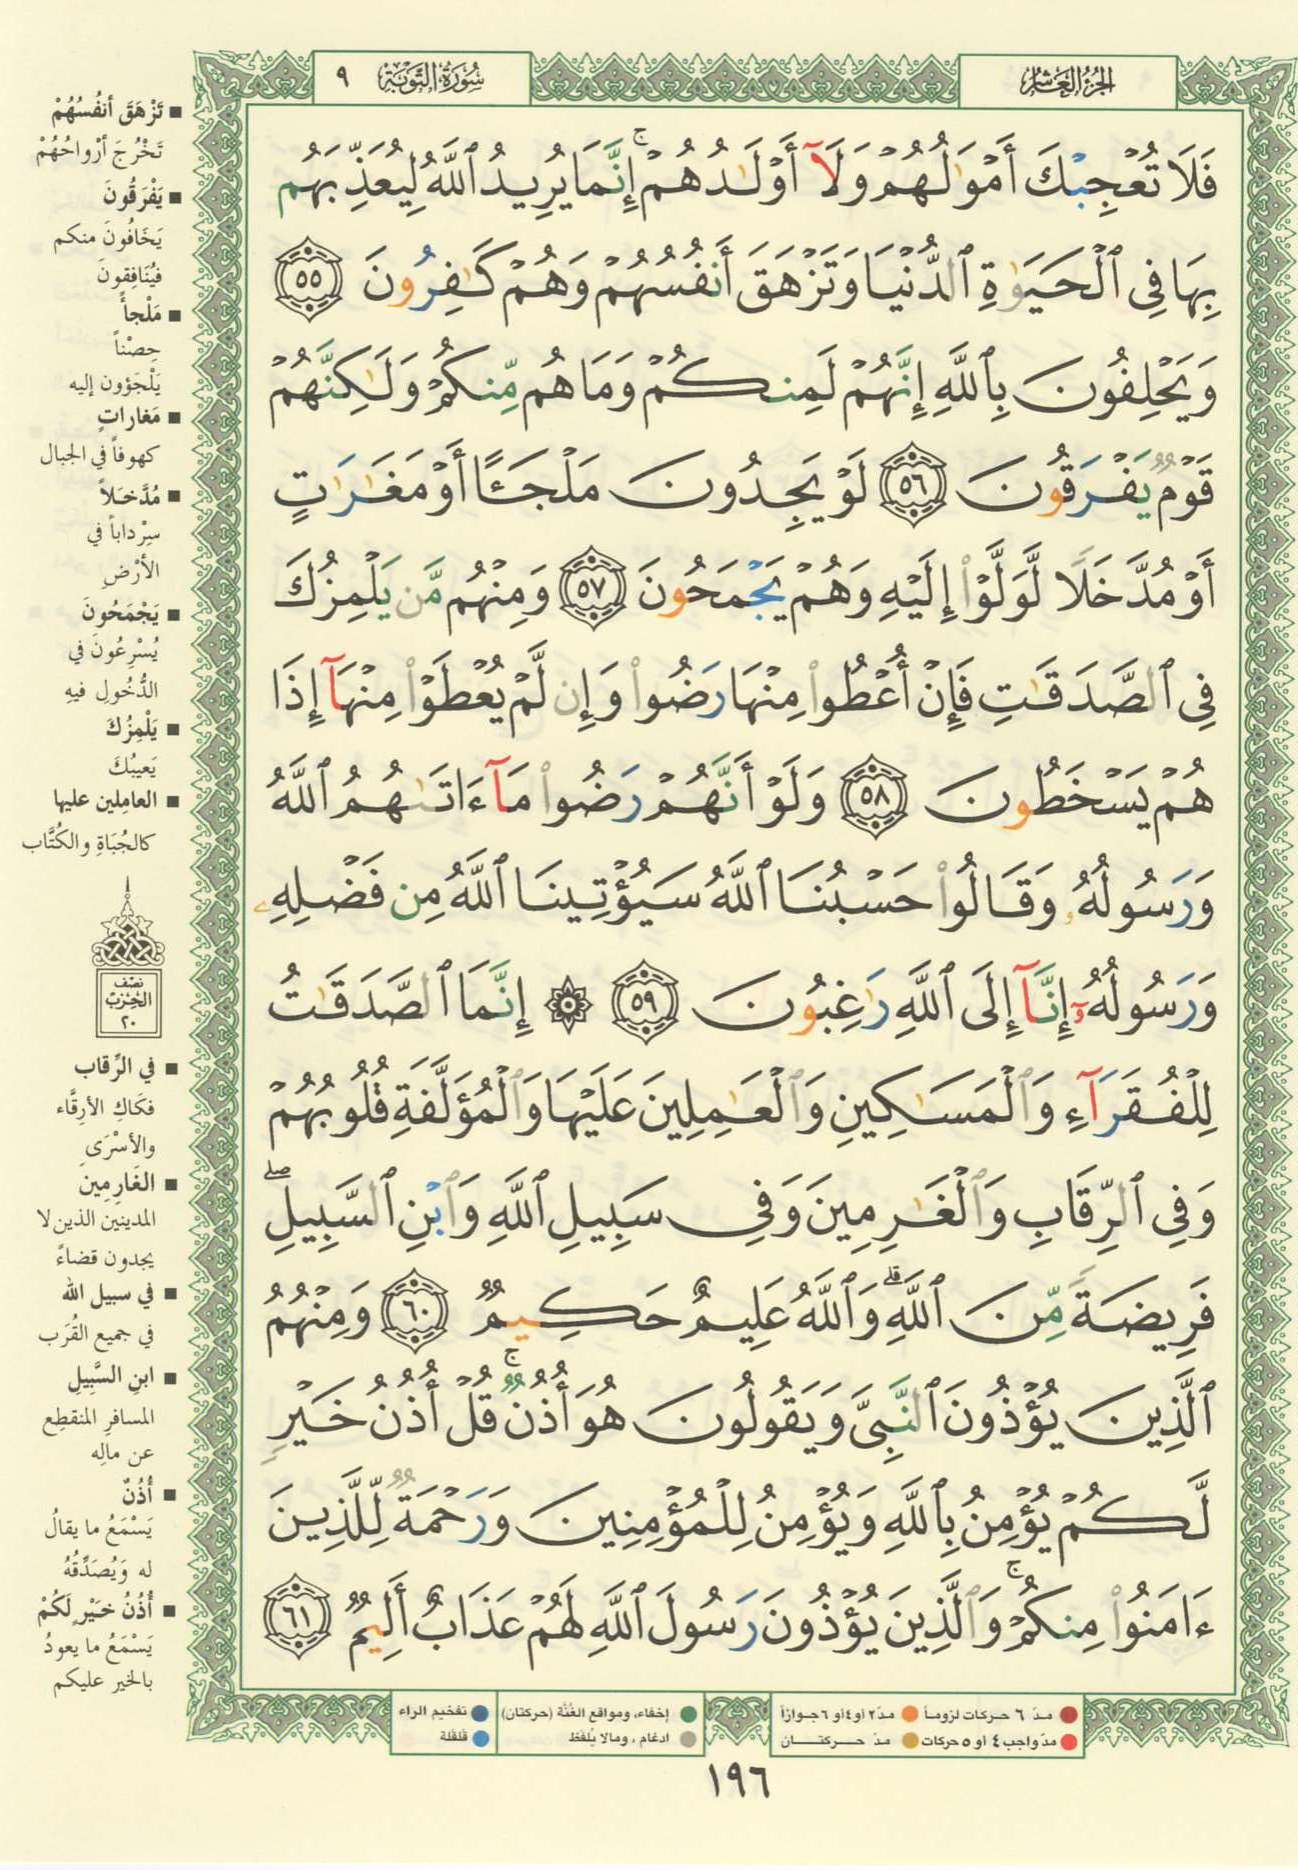 الجزء العاشر
سورة التوبة ٩
فَلَا تُعْجِبْكَ أَمْوَٰلُهُمْ وَلَآ أَوْلَٰدُهُمْ ۚ إِنَّمَا يُرِيدُ ٱللَّهُ لِيُعَذِّبَهُم
بِهَا فِى ٱلْحَيَوٰةِ ٱلدُّنْيَا وَتَزْهَقَ أَنفُسُهُمْ وَهُمْ كَٰفِرُونَ ٥٥
وَيَحْلِفُونَ بِٱللَّهِ إِنَّهُمْ لَمِنكُمْ وَمَا هُم مِّنكُمْ وَلَٰكِنَّهُمْ
قَوْمٌ يَفْرَقُونَ ٥٦ لَوْ يَجِدُونَ مَلْجَـًٔا أَوْ مَغَٰرَٰتٍ
أَوْ مُدَّخَلًا لَّوَلَّوْا۟ إِلَيْهِ وَهُمْ يَجْمَحُونَ ٥٧ وَمِنْهُم مَّن يَلْمِزُكَ
فِى ٱلصَّدَقَٰتِ فَإِنْ أُعْطُوا۟ مِنْهَا رَضُوا۟ وَإِن لَّمْ يُعْطَوْا۟ مِنْهَآ إِذَا
هُمْ يَسْخَطُونَ ٥٨ وَلَوْ أَنَّهُمْ رَضُوا۟ مَآ ءَاتَىٰهُمُ ٱللَّهُ
وَرَسُولُهُۥ وَقَالُوا۟ حَسْبُنَا ٱللَّهُ سَيُؤْتِينَا ٱللَّهُ مِن فَضْلِهِۦ
وَرَسُولُهُۥٓ إِنَّآ إِلَى ٱللَّهِ رَٰغِبُونَ ٥٩ ۞ إِنَّمَا ٱلصَّدَقَٰتُ
لِلْفُقَرَآءِ وَٱلْمَسَٰكِينِ وَٱلْعَٰمِلِينَ عَلَيْهَا وَٱلْمُؤَلَّفَةِ قُلُوبُهُمْ
وَفِى ٱلرِّقَابِ وَٱلْغَٰرِمِينَ وَفِى سَبِيلِ ٱللَّهِ وَٱبْنِ ٱلسَّبِيلِ ۖ
فَرِيضَةً مِّنَ ٱللَّهِ ۗ وَٱللَّهُ عَلِيمٌ حَكِيمٌ ٦٠ وَمِنْهُمُ
ٱلَّذِينَ يُؤْذُونَ ٱلنَّبِىَّ وَيَقُولُونَ هُوَ أُذُنٌ ۚ قُلْ أُذُنُ خَيْرٍ
لَّكُمْ يُؤْمِنُ بِٱللَّهِ وَيُؤْمِنُ لِلْمُؤْمِنِينَ وَرَحْمَةٌ لِّلَّذِينَ
ءَامَنُوا۟ مِنكُمْ ۚ وَٱلَّذِينَ يُؤْذُونَ رَسُولَ ٱللَّهِ لَهُمْ عَذَابٌ أَلِيمٌ ٦١
■ تَزْهَقَ أنفُسُهُمْ
تَخْرُجَ أرْواحُهُمْ
■ يَفْرَقُونَ
يَخَافُونَ منكم
فيُنَافِقونَ
■ مَلْجأً
حِصْناً
يَلْجَؤون إليه
■ مَغاراتٍ
كهوفاً في الجبال
■ مُدَّخَلاً
سِرْداباً في
الأرْضِ
■ يَجْمَحُونَ
يُسْرِعُونَ في
الدُّخُولِ فيهِ
■ يَلْمِزُكَ
يَعيبُكَ
■ العامِلين عليها
كالجُبَاةِ والكُتَّاب
نصف
الحزب
٢٠
■ في الرِّقاب
فكَاكِ الأرِقَّاء
والأسْرَى
■ الغَارِمِينَ
المدينين الذين لا
يجدون قضاءً
■ في سبيل الله
في جميع القُرَب
■ ابنِ السَّبِيلِ
المسافرِ المنقطِع
عن مالِه
■ أُذُنٌ
يَسْمَعُ ما يقالُ
له وَيُصَدِّقُهُ
■ أُذُنُ خيْرٍ لَكُمْ
يَسْمَعُ ما يعودُ
بالخير عليكم
مدّ ٦ حركات لزوماً مدّ ٢ أو ٤ أو ٦ جوازاً
مدّ واجب ٤ أو ٥ حركات مدّ حركتان
إخفاء، ومواقع الغُنَّة (حركتان)
ادغام، وما لا يُلفَظ
تفخيم الراء
قلقلة
١٩٦